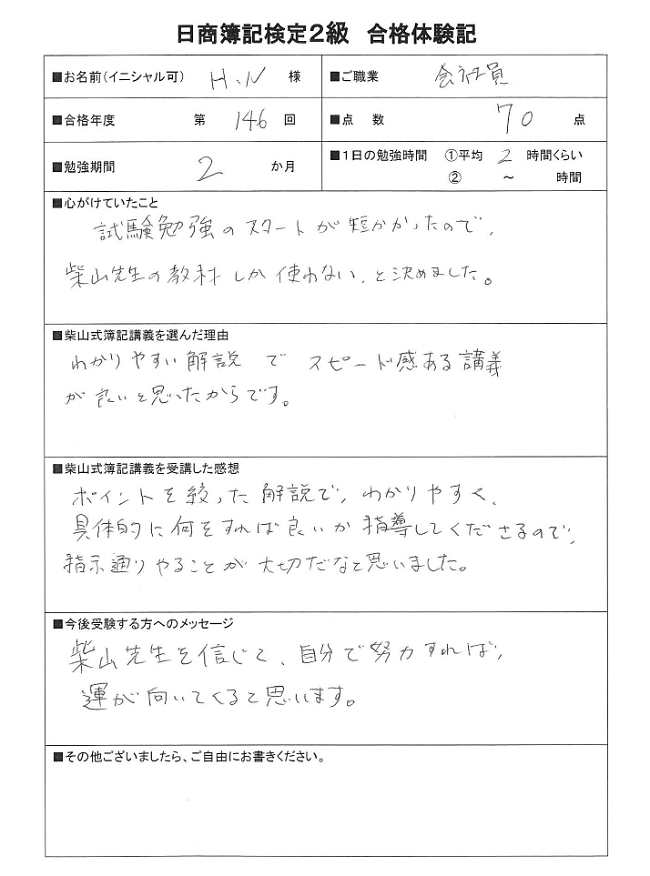 日商簿記検定2級 合格体験記
■お名前(イニシャル可) H.N 様 ■ご職業 会社員
■合格年度 第 146 回 ■点 数 70 点
■勉強期間 2 か月 ■1日の勉強時間 ①平均 2 時間くらい
② ～ 時間
■心がけていたこと
試験勉強のスタートが短かかったので、
柴山先生の教材しか使わない、と決めました。
■柴山式簿記講義を選んだ理由
わかりやすい解説 で スピード感ある講義
が良いと思ったからです。
■柴山式簿記講義を受講した感想
ポイントを絞った解説で、わかりやすく、
具体的に何をすれば良いか指導してくださるので、
指示通りやることが大切だなと思いました。
■今後受験する方へのメッセージ
柴山先生を信じて、自分で努力すれば、
運が向いてくると思います。
■その他ございましたら、ご自由にお書きください。